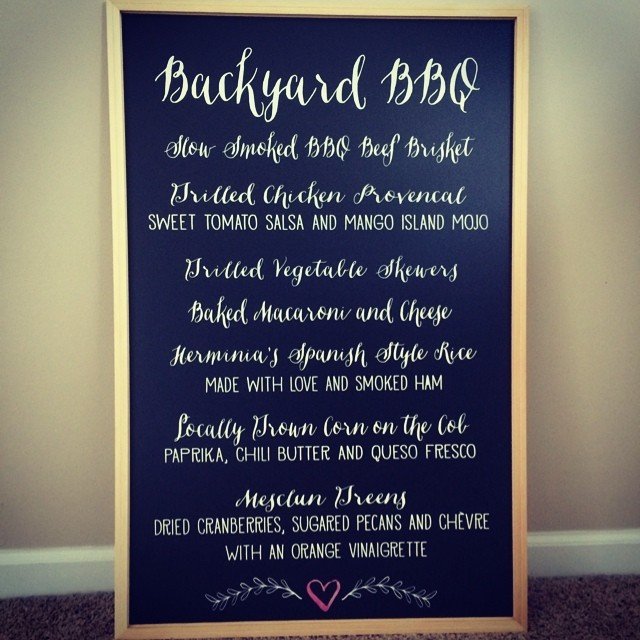 Backyard BBQ
Slow Smoked BBQ Beef Brisket
Grilled Chicken Provencal
SWEET TOMATO SALSA AND MANGO ISLAND MOJO
Grilled Vegetable Skewers
Baked Macaroni and Cheese
Herminia's Spanish Style Rice
MADE WITH LOVE AND SMOKED HAM
Locally Grown Corn on the Cob
PAPRIKA, CHILI BUTTER AND QUESO FRESCO
Mesclun Greens
DRIED CRANBERRIES, SUGARED PECANS AND CHÈVRE
WITH AN ORANGE VINAIGRETTE